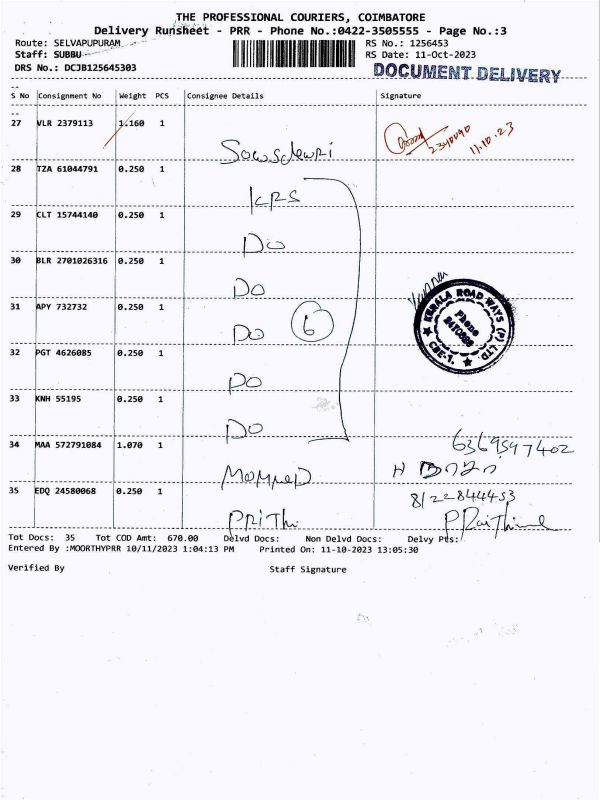 THE PROFESSIONAL COURIERS, COIMBATORE
Delivery Runsheet - PRR - Phone No.:0422-3505555 - Page No.:3
Route: SELVAPUPURAM
RS No.: 1256453
Staff: SUBBU
RS Date: 11-Oct-2023
DRS No.: DCJB125645303
DOCUMENT DELIVERY
S No Consignment No Weight PCS Consignee Details Signature
27 VLR 2379113 1.160 1
2340090 11.10.23
28 TZA 61044791 0.250 1
KRS
29 CLT 15744140 0.250 1
DO
30 BLR 2701026316 0.250 1
DO
31 APY 732732 0.250 1
DO 6
KERALA ROAD WAYS (P) LTD.
Phone
CBE-1.
32 PGT 4626085 0.250 1
DO
33 KNH 55195 0.250 1
DO
34 MAA 572791084 1.070 1
6369597402
35 EDQ 24580068 0.250 1
8122844453
PRiThi
Tot Docs: 35 Tot COD Amt: 670.00 Delvd Docs: Non Delvd Docs: Delvy Pts:
Entered By :MOORTHYPRR 10/11/2023 1:04:13 PM Printed On: 11-10-2023 13:05:30
Verified By Staff Signature